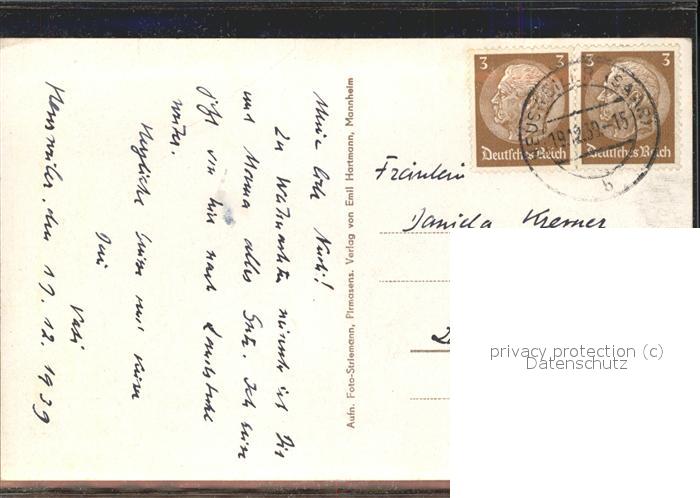 Meine liebe
Zu Weihnachten wünscht ich Dir
und Mama alles Gute. Ich
jetzt von hier nach Landstuhl
weiter.
Herzliche Grüße und Küsse
Dein
Vati
den 19. 12. 1939
Aufn. Foto-Striemann, Pirmasens. Verlag von Emil Hartmann, Mannheim
3 3
Deutsches Reich Deutsches Reich
19.12.39.-15
b
Fräulein
Daniela Kremer
privacy protection (c)
Datenschutz